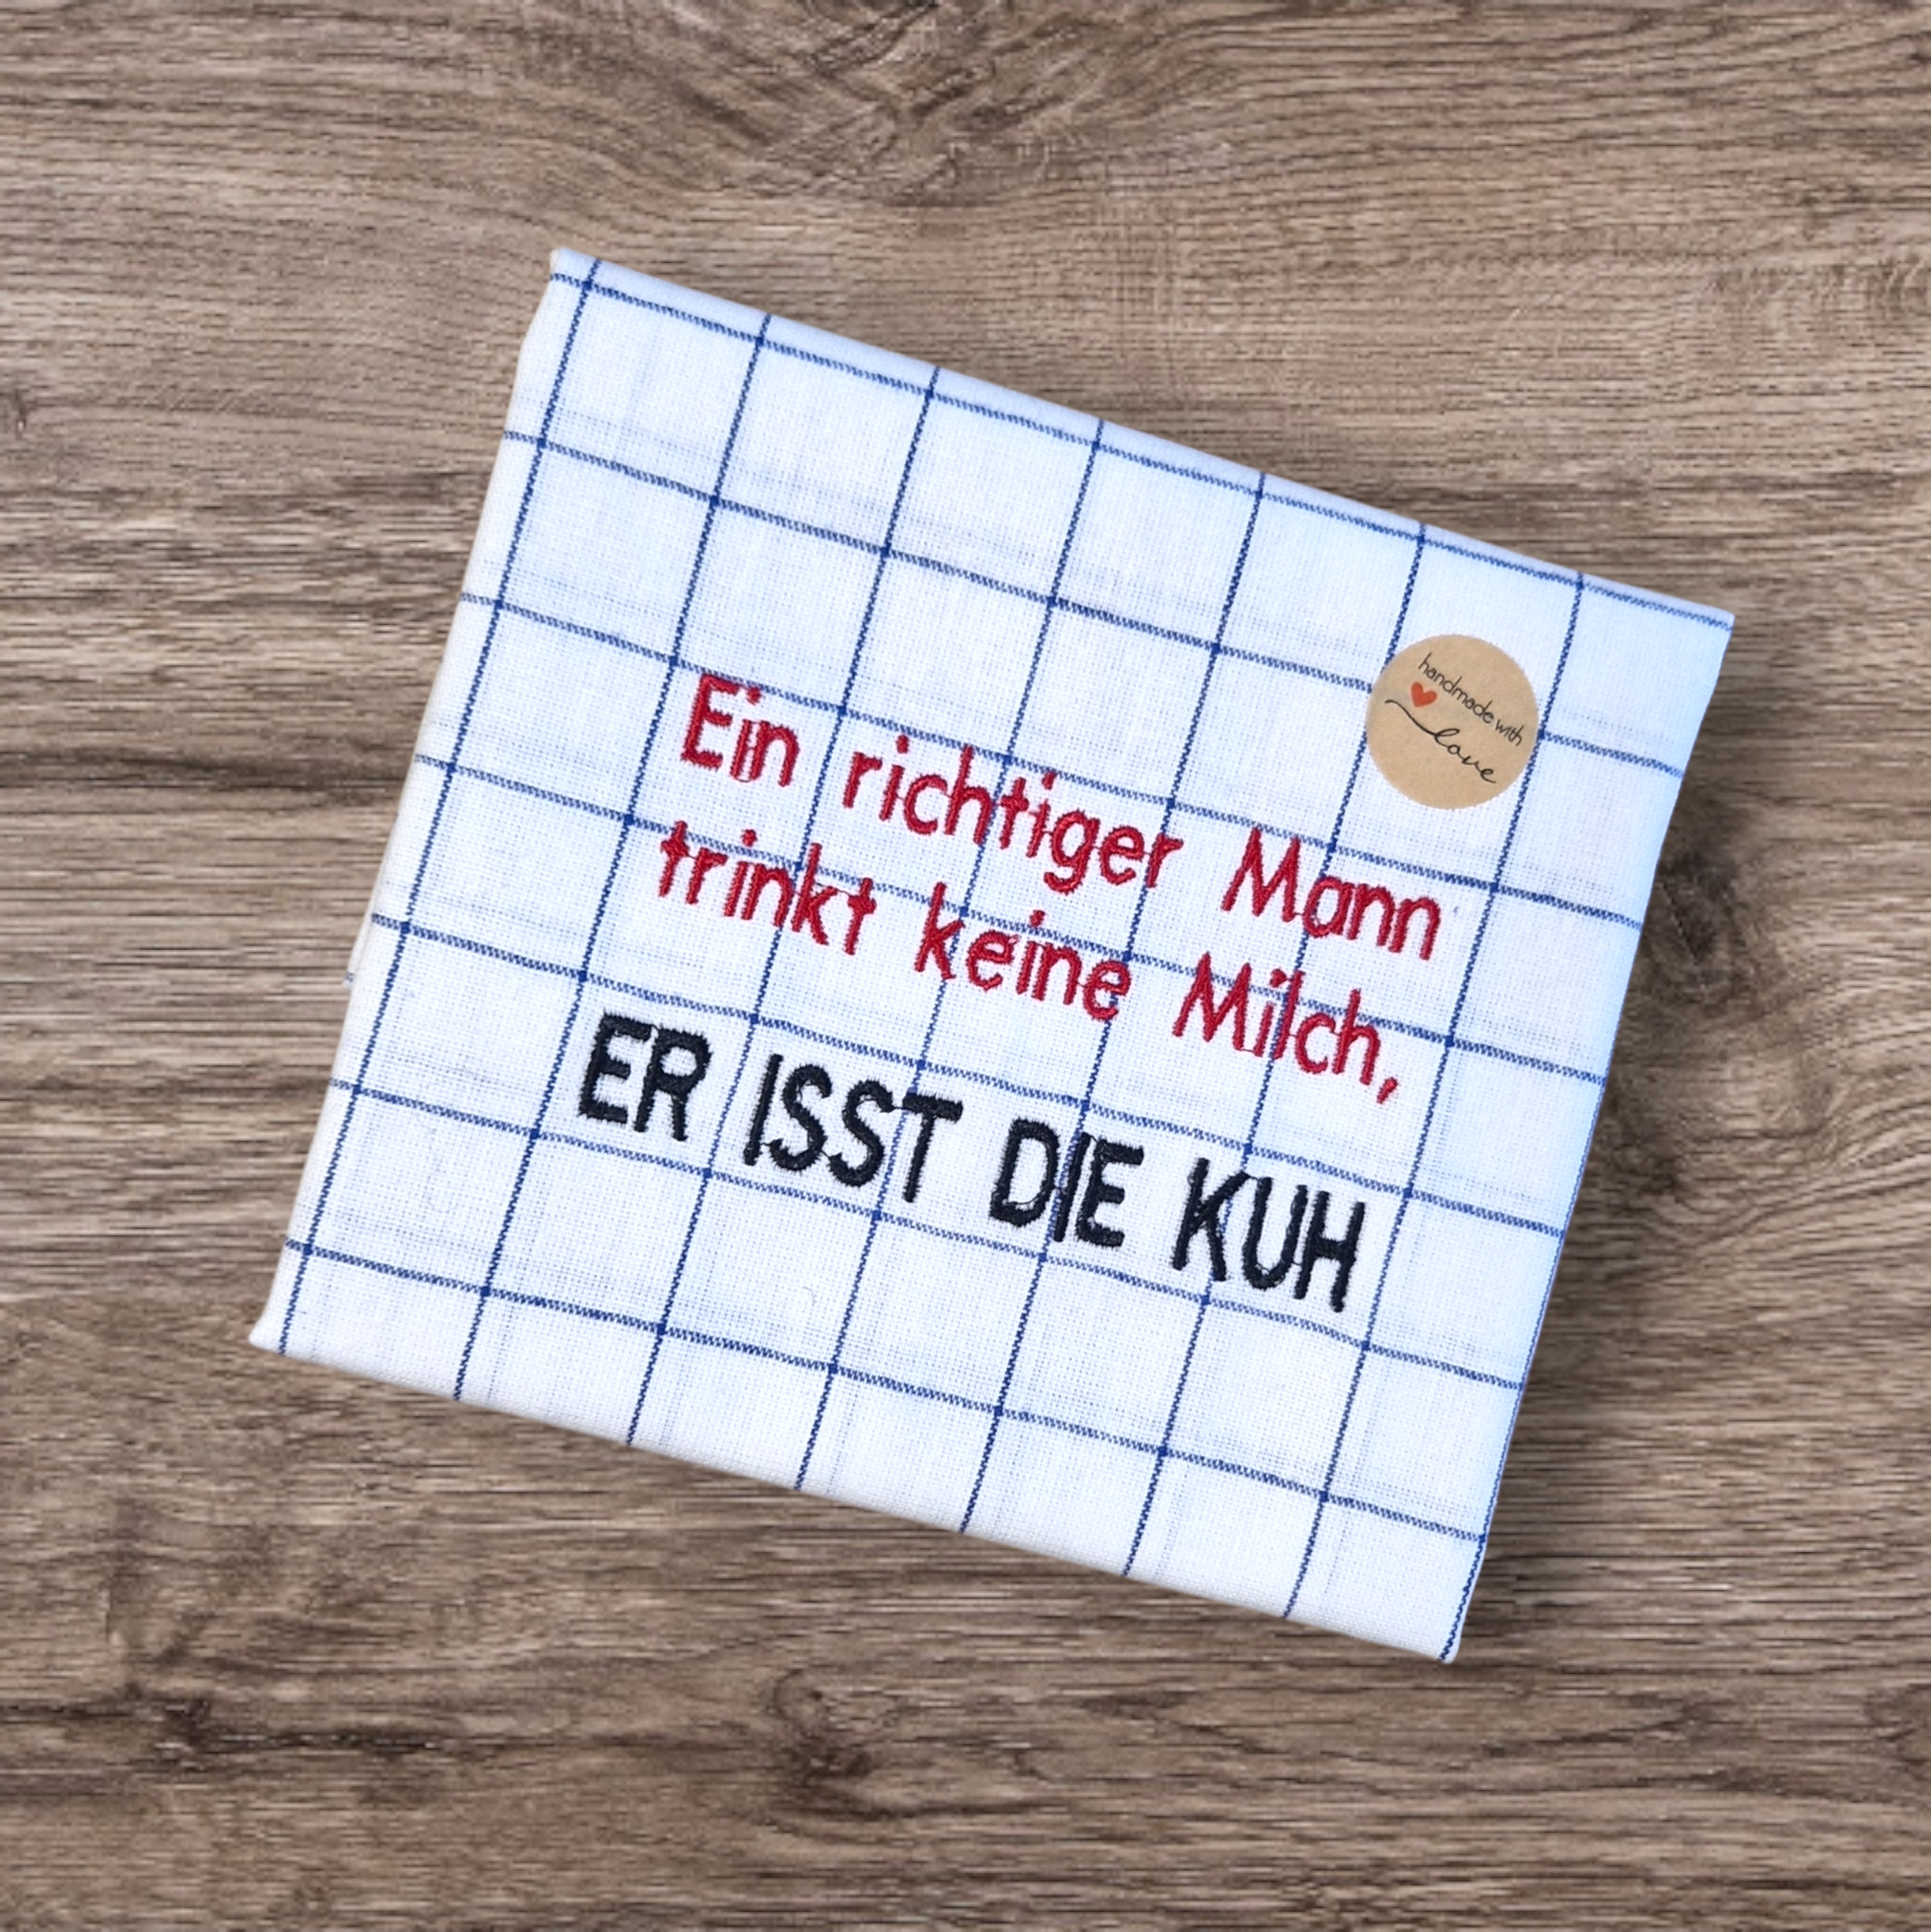 handmade with
love
Ein richtiger Mann
trinkt keine Milch,
ER ISST DIE KUH